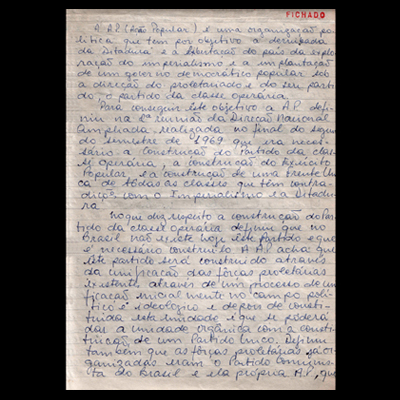 FICHADO
A A.P. (Ação Popular) é uma organização po-
lítica que tem por objetivo a derrubada
da Ditadura e a libertação do país da explo-
ração do imperialismo e a implantação
de um governo democrático popular sob
a direção do proletariado e do seu parti-
do, o partido da classe operária.
Para conseguir este objetivo a A.P. defi-
niu na reunião da Direção Nacional
Ampliada realizada no final do segun-
do semestre de 1969 que era neces-
sário a construção do Partido da clas-
se operária, a construção do Exército
Popular e a construção de uma Frente Úni-
ca de todas as classes que têm contra-
dições com o Imperialismo e a Ditadu-
ra.
No que diz respeito a construção do Par-
tido da classe operária definiu que no
Brasil não existe hoje este Partido e que
é necessário construí-lo. A A.P. acha que
este partido será construído através
da unificação das forças proletárias
existentes através de um processo de uni-
ficação inicialmente no campo polí-
tico e ideológico e depois de consti-
tuída esta unidade é que se poderá
dar a unidade orgânica com a consti-
tuição de um Partido Único. Definiu
também que as forças proletárias já or-
ganizadas eram o Partido Comunis-
ta do Brasil e ela própria A.P., que